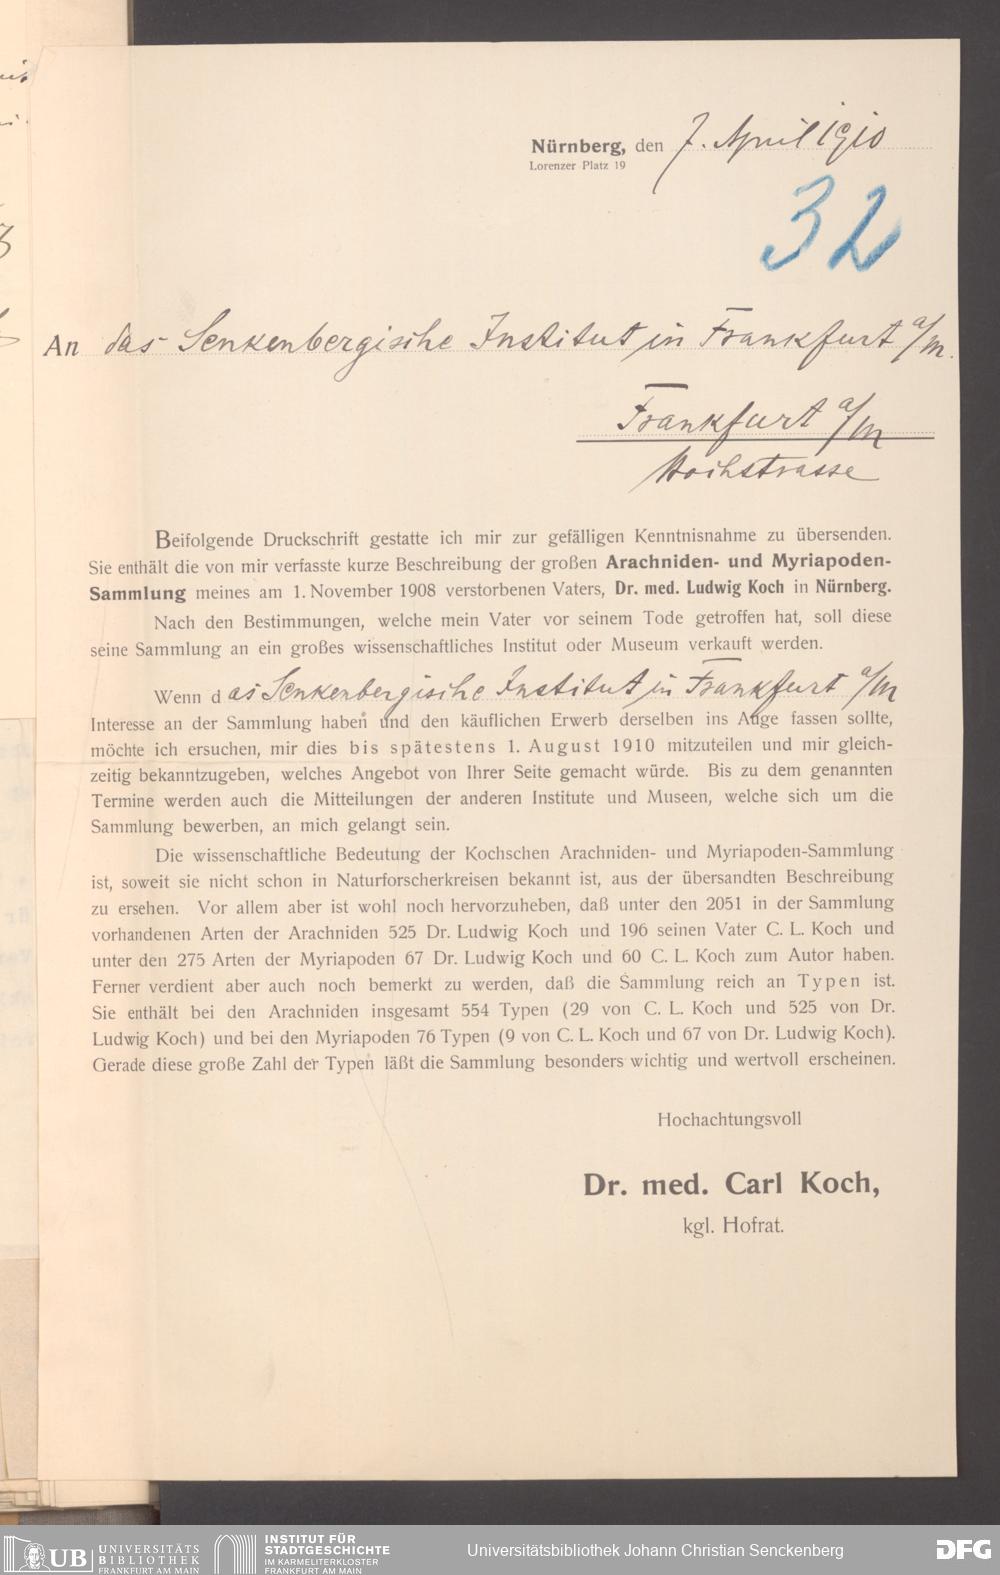 Nürnberg, den 7. April 1910
Lorenzer Platz 19
32
An das Senkenbergische Institut in Frankfurt a/M.
Frankfurt a/M
Hochstrasse
Beifolgende Druckschrift gestatte ich mir zur gefälligen Kenntnisnahme zu übersenden.
Sie enthält die von mir verfasste kurze Beschreibung der großen Arachniden- und Myriapoden-
Sammlung meines am 1. November 1908 verstorbenen Vaters, Dr. med. Ludwig Koch in Nürnberg.
Nach den Bestimmungen, welche mein Vater vor seinem Tode getroffen hat, soll diese
seine Sammlung an ein großes wissenschaftliches Institut oder Museum verkauft werden.
Wenn das Senkenbergische Institut in Frankfurt a/M
Interesse an der Sammlung haben und den käuflichen Erwerb derselben ins Auge fassen sollte,
möchte ich ersuchen, mir dies bis spätestens 1. August 1910 mitzuteilen und mir gleich-
zeitig bekanntzugeben, welches Angebot von Ihrer Seite gemacht würde. Bis zu dem genannten
Termine werden auch die Mitteilungen der anderen Institute und Museen, welche sich um die
Sammlung bewerben, an mich gelangt sein.
Die wissenschaftliche Bedeutung der Kochschen Arachniden- und Myriapoden-Sammlung
ist, soweit sie nicht schon in Naturforscherkreisen bekannt ist, aus der übersandten Beschreibung
zu ersehen. Vor allem aber ist wohl noch hervorzuheben, daß unter den 2051 in der Sammlung
vorhandenen Arten der Arachniden 525 Dr. Ludwig Koch und 196 seinen Vater C. L. Koch und
unter den 275 Arten der Myriapoden 67 Dr. Ludwig Koch und 60 C. L. Koch zum Autor haben.
Ferner verdient aber auch noch bemerkt zu werden, daß die Sammlung reich an Typen ist.
Sie enthält bei den Arachniden insgesamt 554 Typen (29 von C. L. Koch und 525 von Dr.
Ludwig Koch) und bei den Myriapoden 76 Typen (9 von C. L. Koch und 67 von Dr. Ludwig Koch).
Gerade diese große Zahl der Typen läßt die Sammlung besonders wichtig und wertvoll erscheinen.
Hochachtungsvoll
Dr. med. Carl Koch,
kgl. Hofrat.
UB UNIVERSITÄTS
BIBLIOTHEK
FRANKFURT AM MAIN
INSTITUT FÜR
STADTGESCHICHTE
IM KARMELITERKLOSTER
FRANKFURT AM MAIN
Universitätsbibliothek Johann Christian Senckenberg
DFG